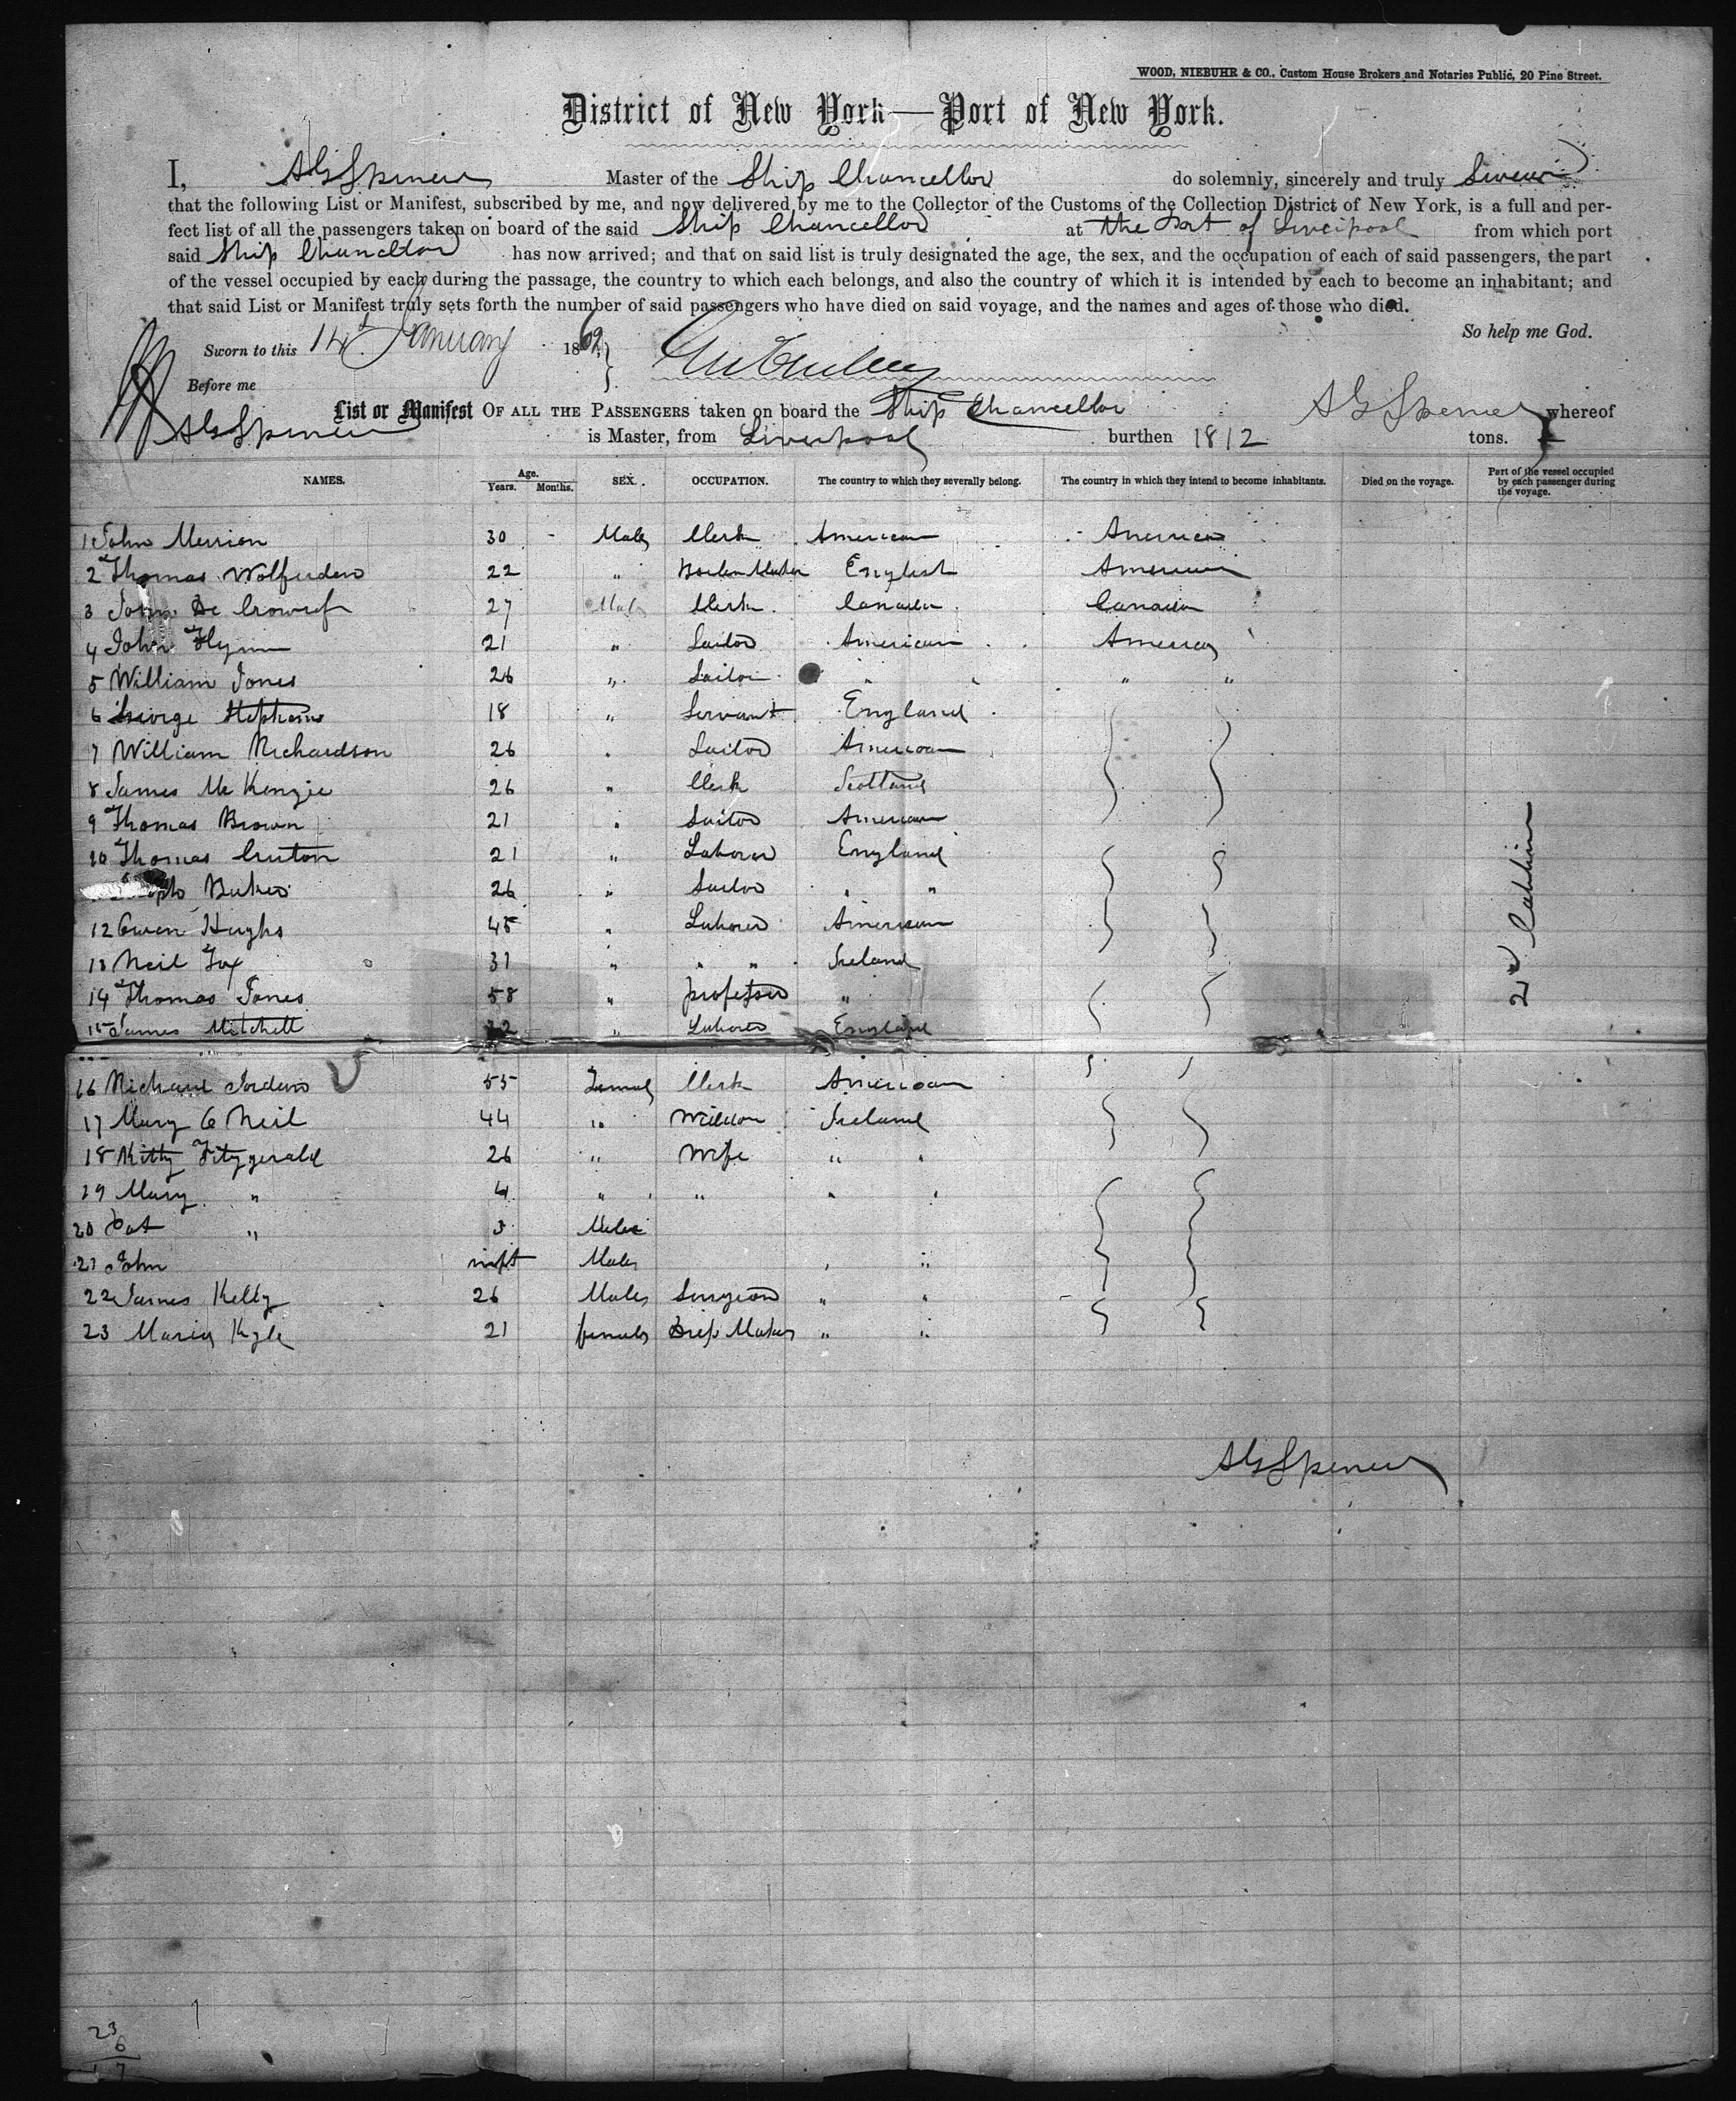 WOOD, NIEBUHR & CO., Custom House Brokers and Notaries Public, 20 Pine Street.
District of New York—Port of New York.
I, A G Spencer Master of the Ship Chancellor do solemnly, sincerely and truly Swear
that the following List or Manifest, subscribed by me, and now delivered by me to the Collector of the Customs of the Collection District of New York, is a full and per-
fect list of all the passengers taken on board of the said Ship Chancellor at the Port of Liverpool from which port
said Ship Chancellor has now arrived; and that on said list is truly designated the age, the sex, and the occupation of each of said passengers, the part
of the vessel occupied by each during the passage, the country to which each belongs, and also the country of which it is intended by each to become an inhabitant; and
that said List or Manifest truly sets forth the number of said passengers who have died on said voyage, and the names and ages of those who died.
So help me God.
Sworn to this 14th January 1862
Before me
List or Manifest OF ALL THE PASSENGERS taken on board the Ship Chancellor A G Spencer whereof
A G Spencer is Master, from Liverpool burthen 1812 tons.
NAMES. Age. Years. Months. SEX. OCCUPATION. The country to which they severally belong. The country in which they intend to become inhabitants. Died on the voyage. Part of the vessel occupied by each passenger during the voyage.
1 John Merrion 30 - Male Clerk American America
2 Thomas Wolfenden 22 " Boiler Maker English American
3 John 27 Male Clerk Canada Canada
4 John Flynn 21 " Sailor American America
5 William Jones 26 " Sailor " " " "
6 George Stephens 18 " Servant England
7 William Richardson 26 " Sailor American
8 James McKenzie 26 " Clerk Scotland
9 Thomas Brown 21 " Sailor American
10 Thomas 21 " Laborer England
Baker 26 " Sailor " "
12 Owen Hughs 45 " Laborer American
13 Neil Fox 31 " " " Ireland
14 Thomas Jones 58 " professor "
15 James Mitchell 22 " Laborer England
2nd Cabbin
16 Richard Jordan 55 Female Clerk American
17 Mary O Neil 44 " Widdow Ireland
18 Kitty Fitzgerald 26 " Wife " "
19 Mary " 4 " " " "
20 Pat " 3 Male
21 John inft Male " "
22 James Kelly 26 Male Surgeon " "
23 Maria Kyle 21 female Dress Maker " "
A G Spencer
23
6
17